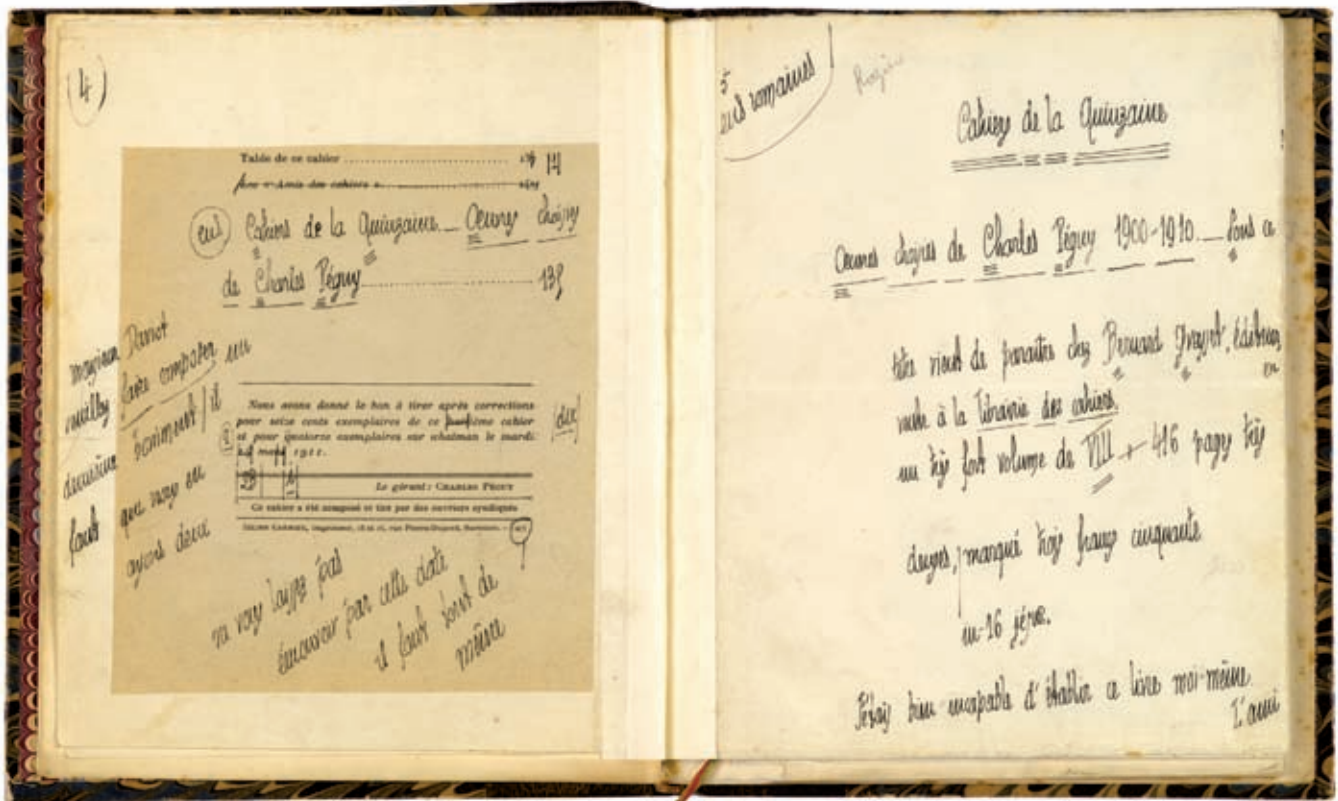 (4)
Table de ce cahier
14
eul
Cahiers de la Quinzaine — Œuvres choisies
de Charles Péguy
135
monsieur Daviot
veuillez faire composer un
deuxième boniment / il
faut que nous en
ayons deux
Nous avons donné le bon à tirer après corrections
pour seize cents exemplaires de ce cahier
et pour quatorze exemplaires sur whatman le mardi
1911.
Le gérant : CHARLES PÉGUY
Ce cahier a été composé et tiré par des ouvriers syndiqués
JULIEN CRÉMIEU, imprimeur, rue Pierre-Dupont, Suresnes.
ne vous laissez pas
émouvoir par cette date
il faut tout de
même
romaines
Cahiers de la Quinzaine
Œuvres choisies de Charles Péguy 1900-1910. — Sous ce
titre vient de paraître chez Bernard Grasset, éditeur,
en
vente à la librairie des cahiers
un très fort volume de VIII + 416 pages très
denses, marqué trois francs cinquante
in-16 jésus.
J'étais bien incapable d'établir ce livre moi-même
L'ami